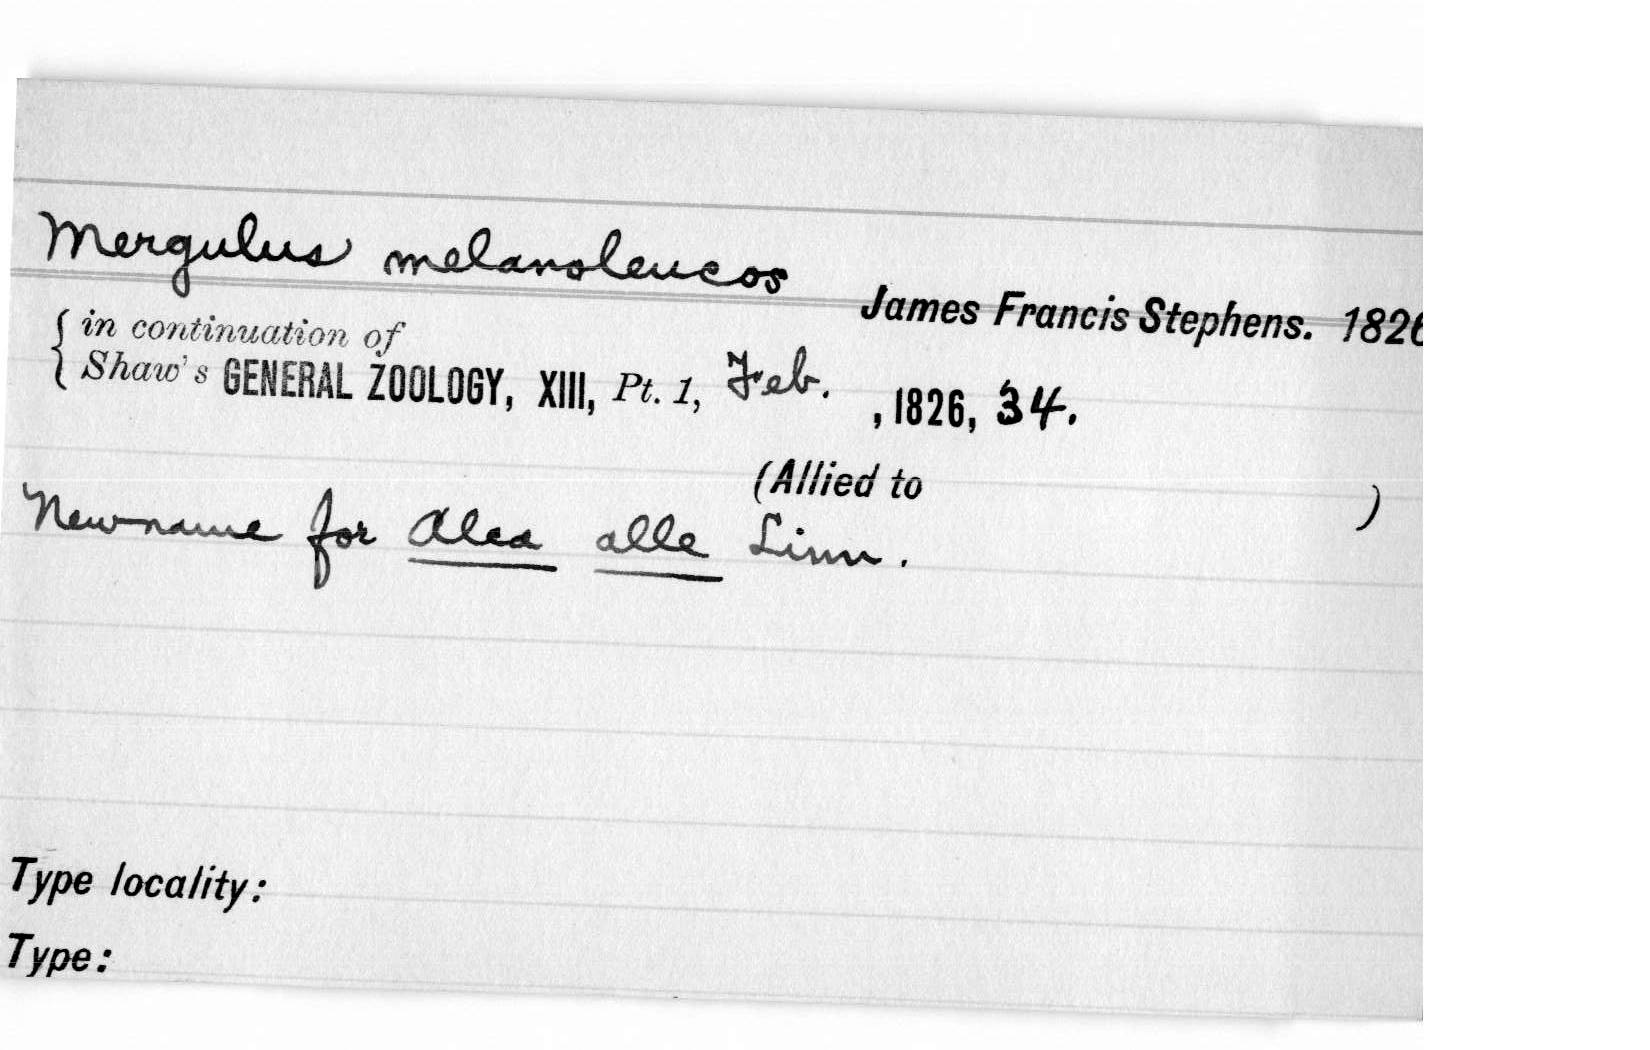 Mergulus melanoleucos
James Francis Stephens. 1826
{ in continuation of
Shaw's GENERAL ZOOLOGY, XIII, Pt. 1, Feb. , 1826, 34.
(Allied to )
New name for Alca alle Linn.
Type locality:
Type: